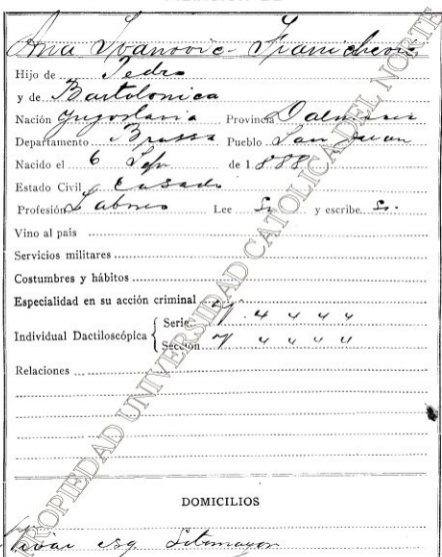 Ana Ivanovic - Franichevic
Hijo de Pedro
y de Bartolonica
Nación Yugoslavia Provincia Dalmasia
Departamento Brassa Pueblo San Juan
Nacido el 6 Sep de 1888
Estado Civil Casado
Profesión Labores Lee Si y escribe Si.
Vino al país
Servicios militares
Costumbres y hábitos
Especialidad en su acción criminal
Individual Dactiloscópica { Serie 4 4 4 4
Sección 4 4 4 4
Relaciones
DOMICILIOS
esq Sotomayor
PROPIEDAD UNIVERSIDAD CATOLICA DEL NORTE